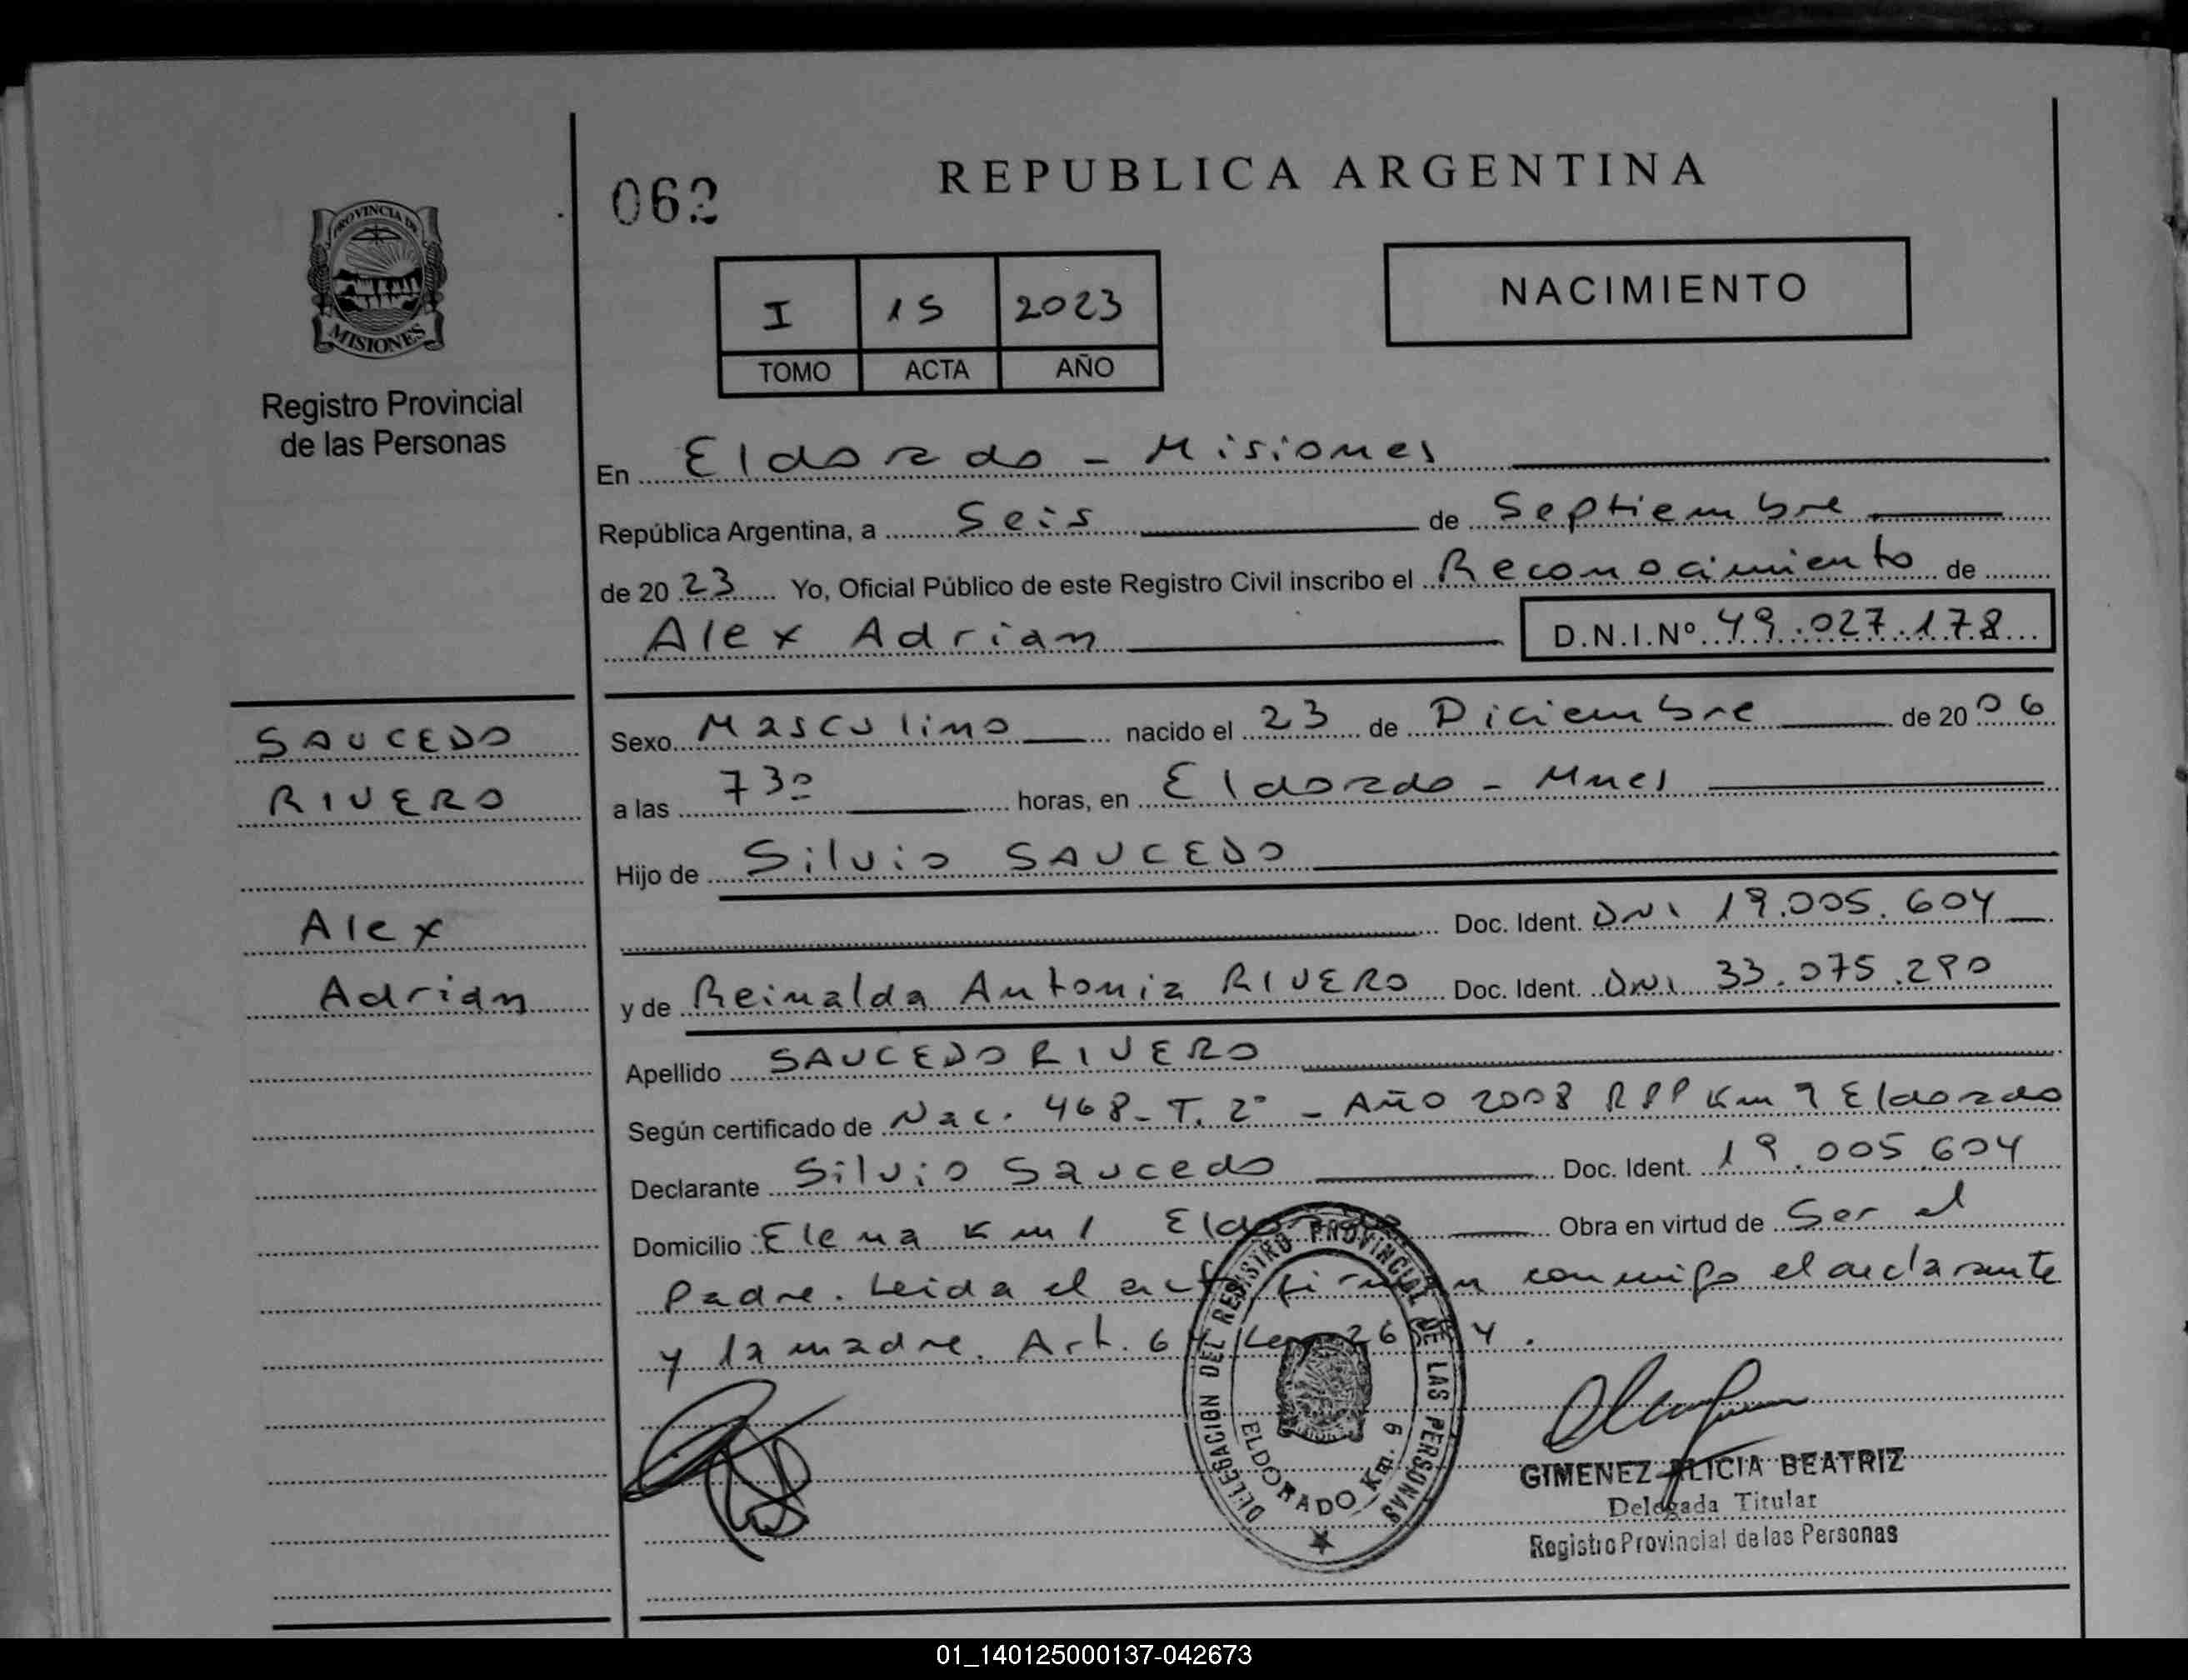 REPUBLICA ARGENTINA
062
PROVINCIA DE
MISIONES
Registro Provincial
de las Personas
I 15 2023
TOMO ACTA AÑO
NACIMIENTO
En Eldorado - Misiones
República Argentina, a Seis de Septiembre
de 2023 Yo, Oficial Público de este Registro Civil inscribo el Reconocimiento de
Alex Adrian D.N.I.Nº 49.027.178
SAUCEDO
RIVERO
Alex
Adrian
Sexo Masculino nacido el 23 de Diciembre de 2006
a las 730 horas, en Eldorado - Mnes
Hijo de Silvio SAUCEDO
Doc. Ident. DNI 19.005.604
y de Reinalda Antonia RIVERO Doc. Ident. DNI 33.075.290
Apellido SAUCEDO RIVERO
Según certificado de Nac. 468 - T. 2° - Año 2008 RPP Km 9 Eldorado
Declarante Silvio Saucedo Doc. Ident. 19.005.604
Domicilio Elena Km 1 Eldorado Obra en virtud de Ser el
Padre. Leida el acta firman conmigo el declarante
y la madre. Art. 64 Ley 26
DELEGACION DEL REGISTRO PROVINCIAL DE LAS PERSONAS
ELDORADO Km. 9
GIMENEZ ALICIA BEATRIZ
Delegada Titular
Registro Provincial de las Personas
01_140125000137-042673